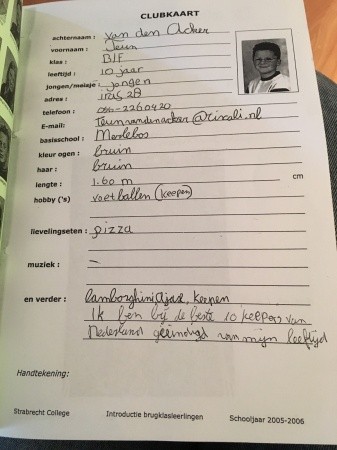 CLUBKAART
achternaam : van den Acker
voornaam : Teun
klas : B1F
leeftijd : 10 jaar
jongen/meisje : jongen
adres : 28
telefoon : 2260420
E-mail: Teunvandenacker@rixali.nl
basisschool : Merlebos
kleur ogen : bruin
haar : bruin
lengte : 1.60 m cm
hobby ('s) voetballen (keepen)
lievelingseten : pizza
muziek : –
en verder : lamborghini, ajax, keepen
Ik ben bij de beste 10 keepers van
Nederland geëindigd van mijn leeftijd
Handtekening:
Strabrecht College Introductie brugklasleerlingen Schooljaar 2005-2006